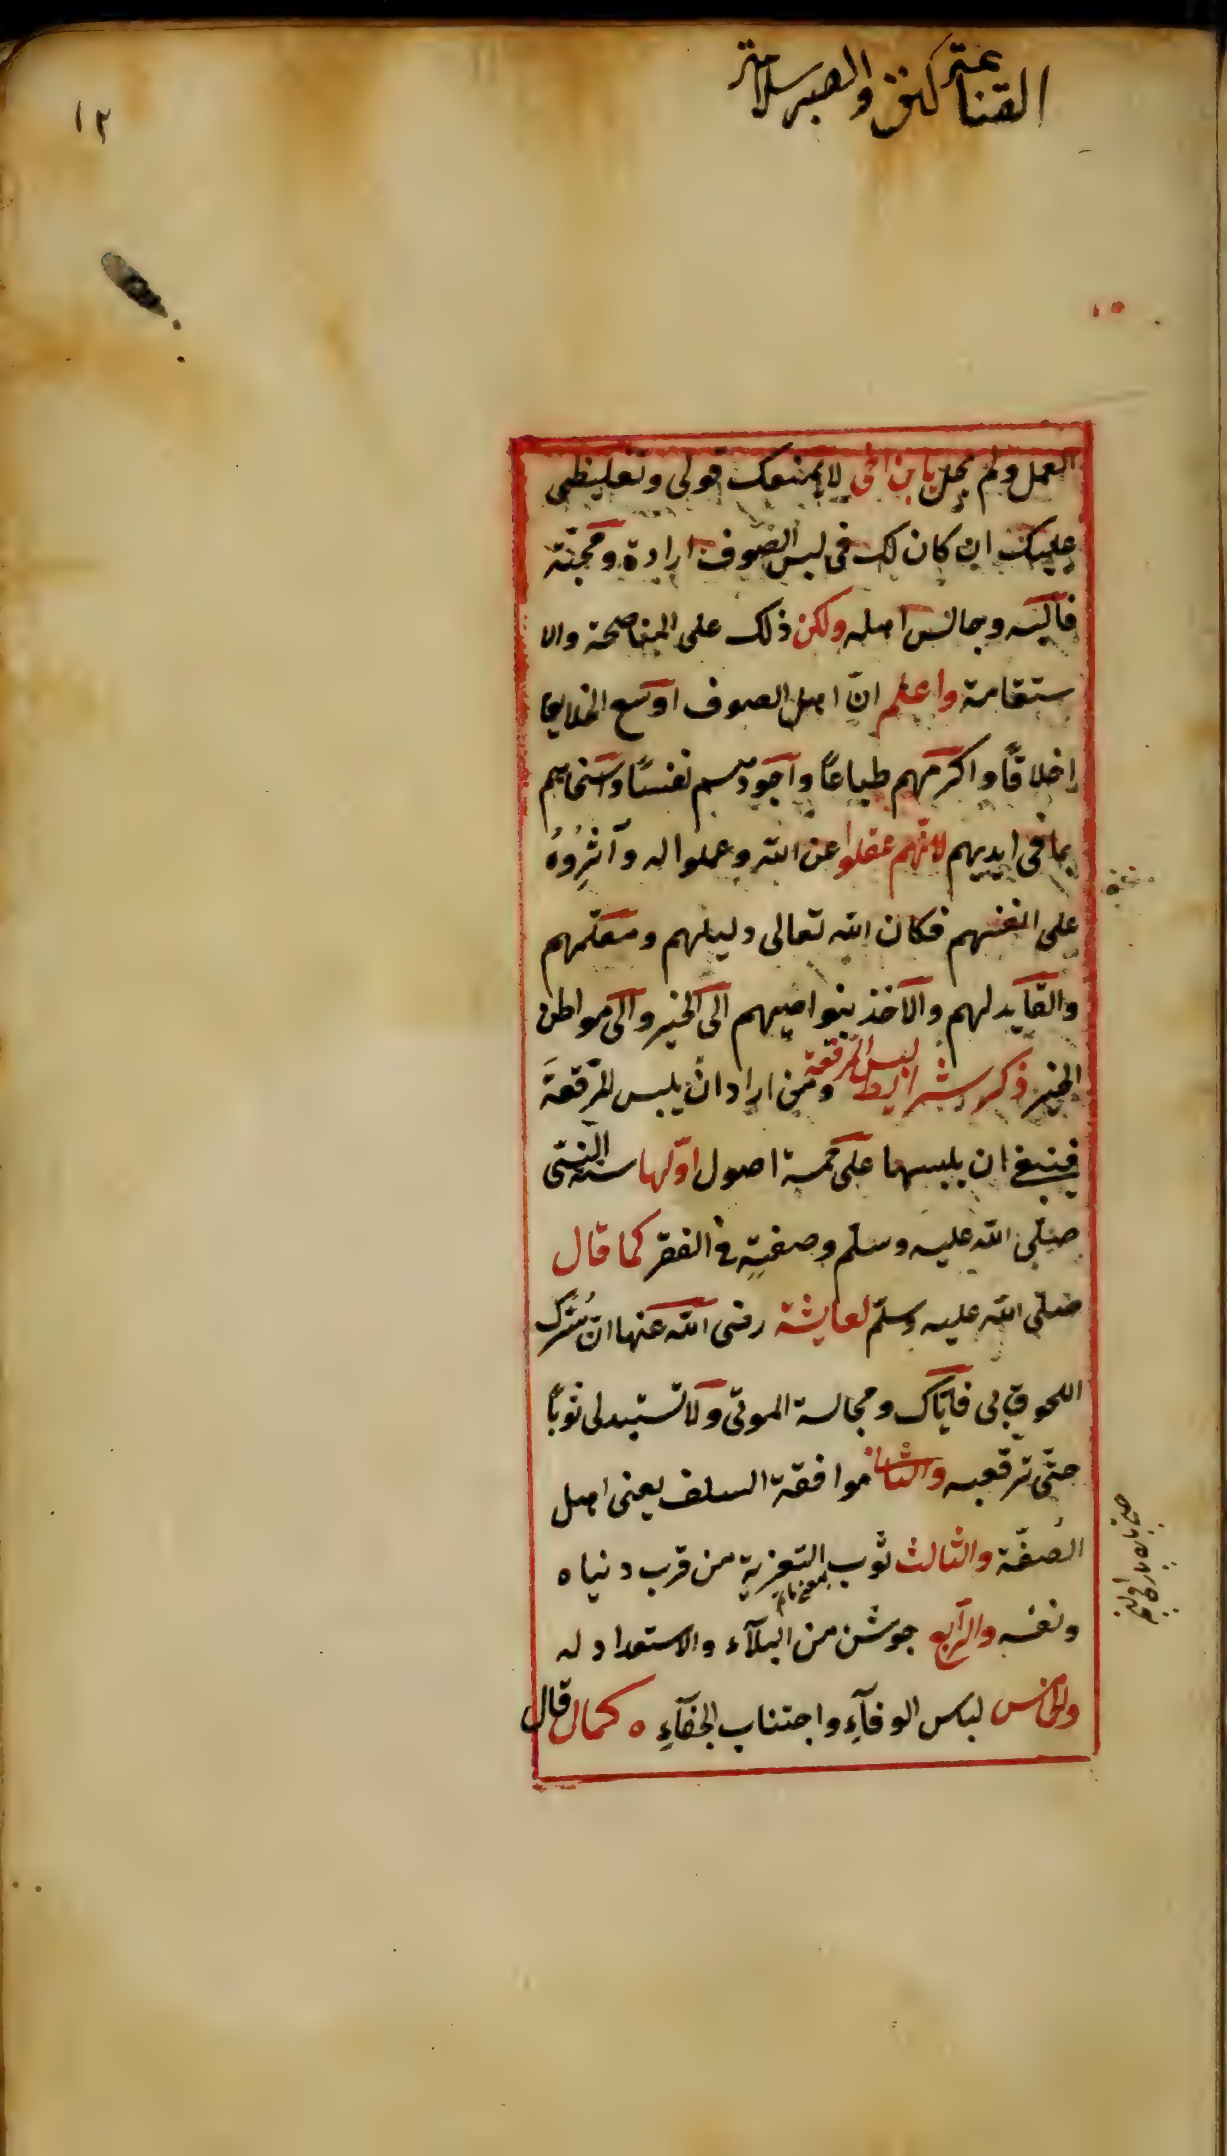 القناعة كنز والصبر سلامة
١٢
العمل ولم يمل يا بن اخى لا يمنعك قولى وتغليظى
عليك ان كان لك فى لبس الصوف ارادة ومحبّة
فالبسه وجالس اهله ولكن ذلك على المناصحة والا
ستقامة واعلم انّ اهل الصوف اوسع الخلايق
اخلاقًا واكرمهم طباعًا واجودهم نفسًا واسخاهم
بما فى ايديهم لانّهم عقلوا عن الله وعملوا له وآثروه
على انفسهم فكان الله تعالى دليلهم ومعلّمهم
والقايد لهم والآخذ بنواصيهم الى الخير والى مواطن
الخير ذكر شرايط لبس المرقعة ومن اراد ان يلبس المرقعة
فينبغى ان يلبسها على خمسة اصول اوّلها سنة النبىّ
صلّى الله عليه وسلّم وصفته فى الفقر كما قال
صلّى الله عليه وسلّم لعايشة رضى الله عنها ان سُرّك
اللحوق بى فايّاك ومجالسة الموتى ولا تستبدلى ثوبًا
حتّى ترقعيه والثانى موافقة السلف يعنى اهل
الصُفّة والثالث ثوب التعزية من قرب دنياه
ونفسه والرّابع جوشن من البلآء والاستعداد له
والخامس لباس الوفآء واجتناب الجفآء ه كما قال